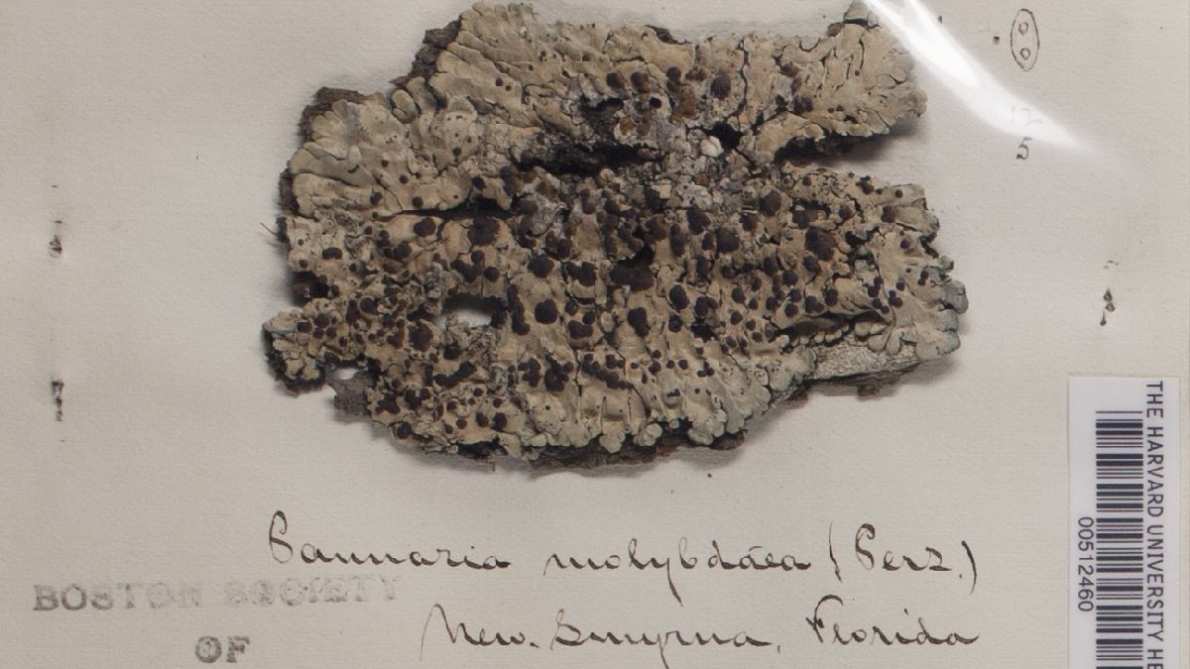 5
Pannaria molybdaea (Pers.)
New. Smyrna, Florida
BOSTON SOCIETY
OF
THE HARVARD UNIVERSITY HE
00512460